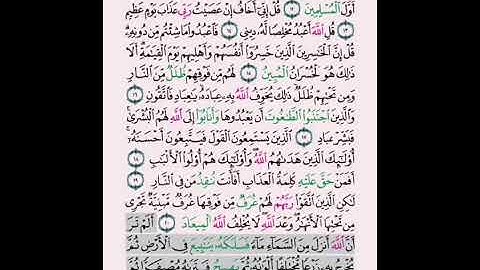 أَوَّلَ ٱلْمُسْلِمِينَ ١٢ قُلْ إِنِّىٓ أَخَافُ إِنْ عَصَيْتُ رَبِّى عَذَابَ يَوْمٍ عَظِيمٍ
١٣ قُلِ ٱللَّهَ أَعْبُدُ مُخْلِصًا لَّهُۥ دِينِى ١٤ فَٱعْبُدُوا۟ مَا شِئْتُم مِّن دُونِهِۦ
قُلْ إِنَّ ٱلْخَٰسِرِينَ ٱلَّذِينَ خَسِرُوٓا۟ أَنفُسَهُمْ وَأَهْلِيهِمْ يَوْمَ ٱلْقِيَٰمَةِ أَلَا
ذَٰلِكَ هُوَ ٱلْخُسْرَانُ ٱلْمُبِينُ ١٥ لَهُم مِّن فَوْقِهِمْ ظُلَلٌ مِّنَ ٱلنَّارِ
وَمِن تَحْتِهِمْ ظُلَلٌ ذَٰلِكَ يُخَوِّفُ ٱللَّهُ بِهِۦ عِبَادَهُۥ يَٰعِبَادِ فَٱتَّقُونِ ١٦
وَٱلَّذِينَ ٱجْتَنَبُوا۟ ٱلطَّٰغُوتَ أَن يَعْبُدُوهَا وَأَنَابُوٓا۟ إِلَى ٱللَّهِ لَهُمُ ٱلْبُشْرَىٰ
فَبَشِّرْ عِبَادِ ١٧ ٱلَّذِينَ يَسْتَمِعُونَ ٱلْقَوْلَ فَيَتَّبِعُونَ أَحْسَنَهُۥٓ
أُو۟لَٰٓئِكَ ٱلَّذِينَ هَدَىٰهُمُ ٱللَّهُ وَأُو۟لَٰٓئِكَ هُمْ أُو۟لُوا۟ ٱلْأَلْبَٰبِ ١٨
أَفَمَنْ حَقَّ عَلَيْهِ كَلِمَةُ ٱلْعَذَابِ أَفَأَنتَ تُنقِذُ مَن فِى ٱلنَّارِ ١٩
لَٰكِنِ ٱلَّذِينَ ٱتَّقَوْا۟ رَبَّهُمْ لَهُمْ غُرَفٌ مِّن فَوْقِهَا غُرَفٌ مَّبْنِيَّةٌ تَجْرِى
مِن تَحْتِهَا ٱلْأَنْهَٰرُ وَعْدَ ٱللَّهِ لَا يُخْلِفُ ٱللَّهُ ٱلْمِيعَادَ ٢٠ أَلَمْ تَرَ
أَنَّ ٱللَّهَ أَنزَلَ مِنَ ٱلسَّمَآءِ مَآءً فَسَلَكَهُۥ يَنَٰبِيعَ فِى ٱلْأَرْضِ ثُمَّ
يُخْرِجُ بِهِۦ زَرْعًا مُّخْتَلِفًا أَلْوَٰنُهُۥ ثُمَّ يَهِيجُ فَتَرَىٰهُ مُصْفَرًّا ثُمَّ